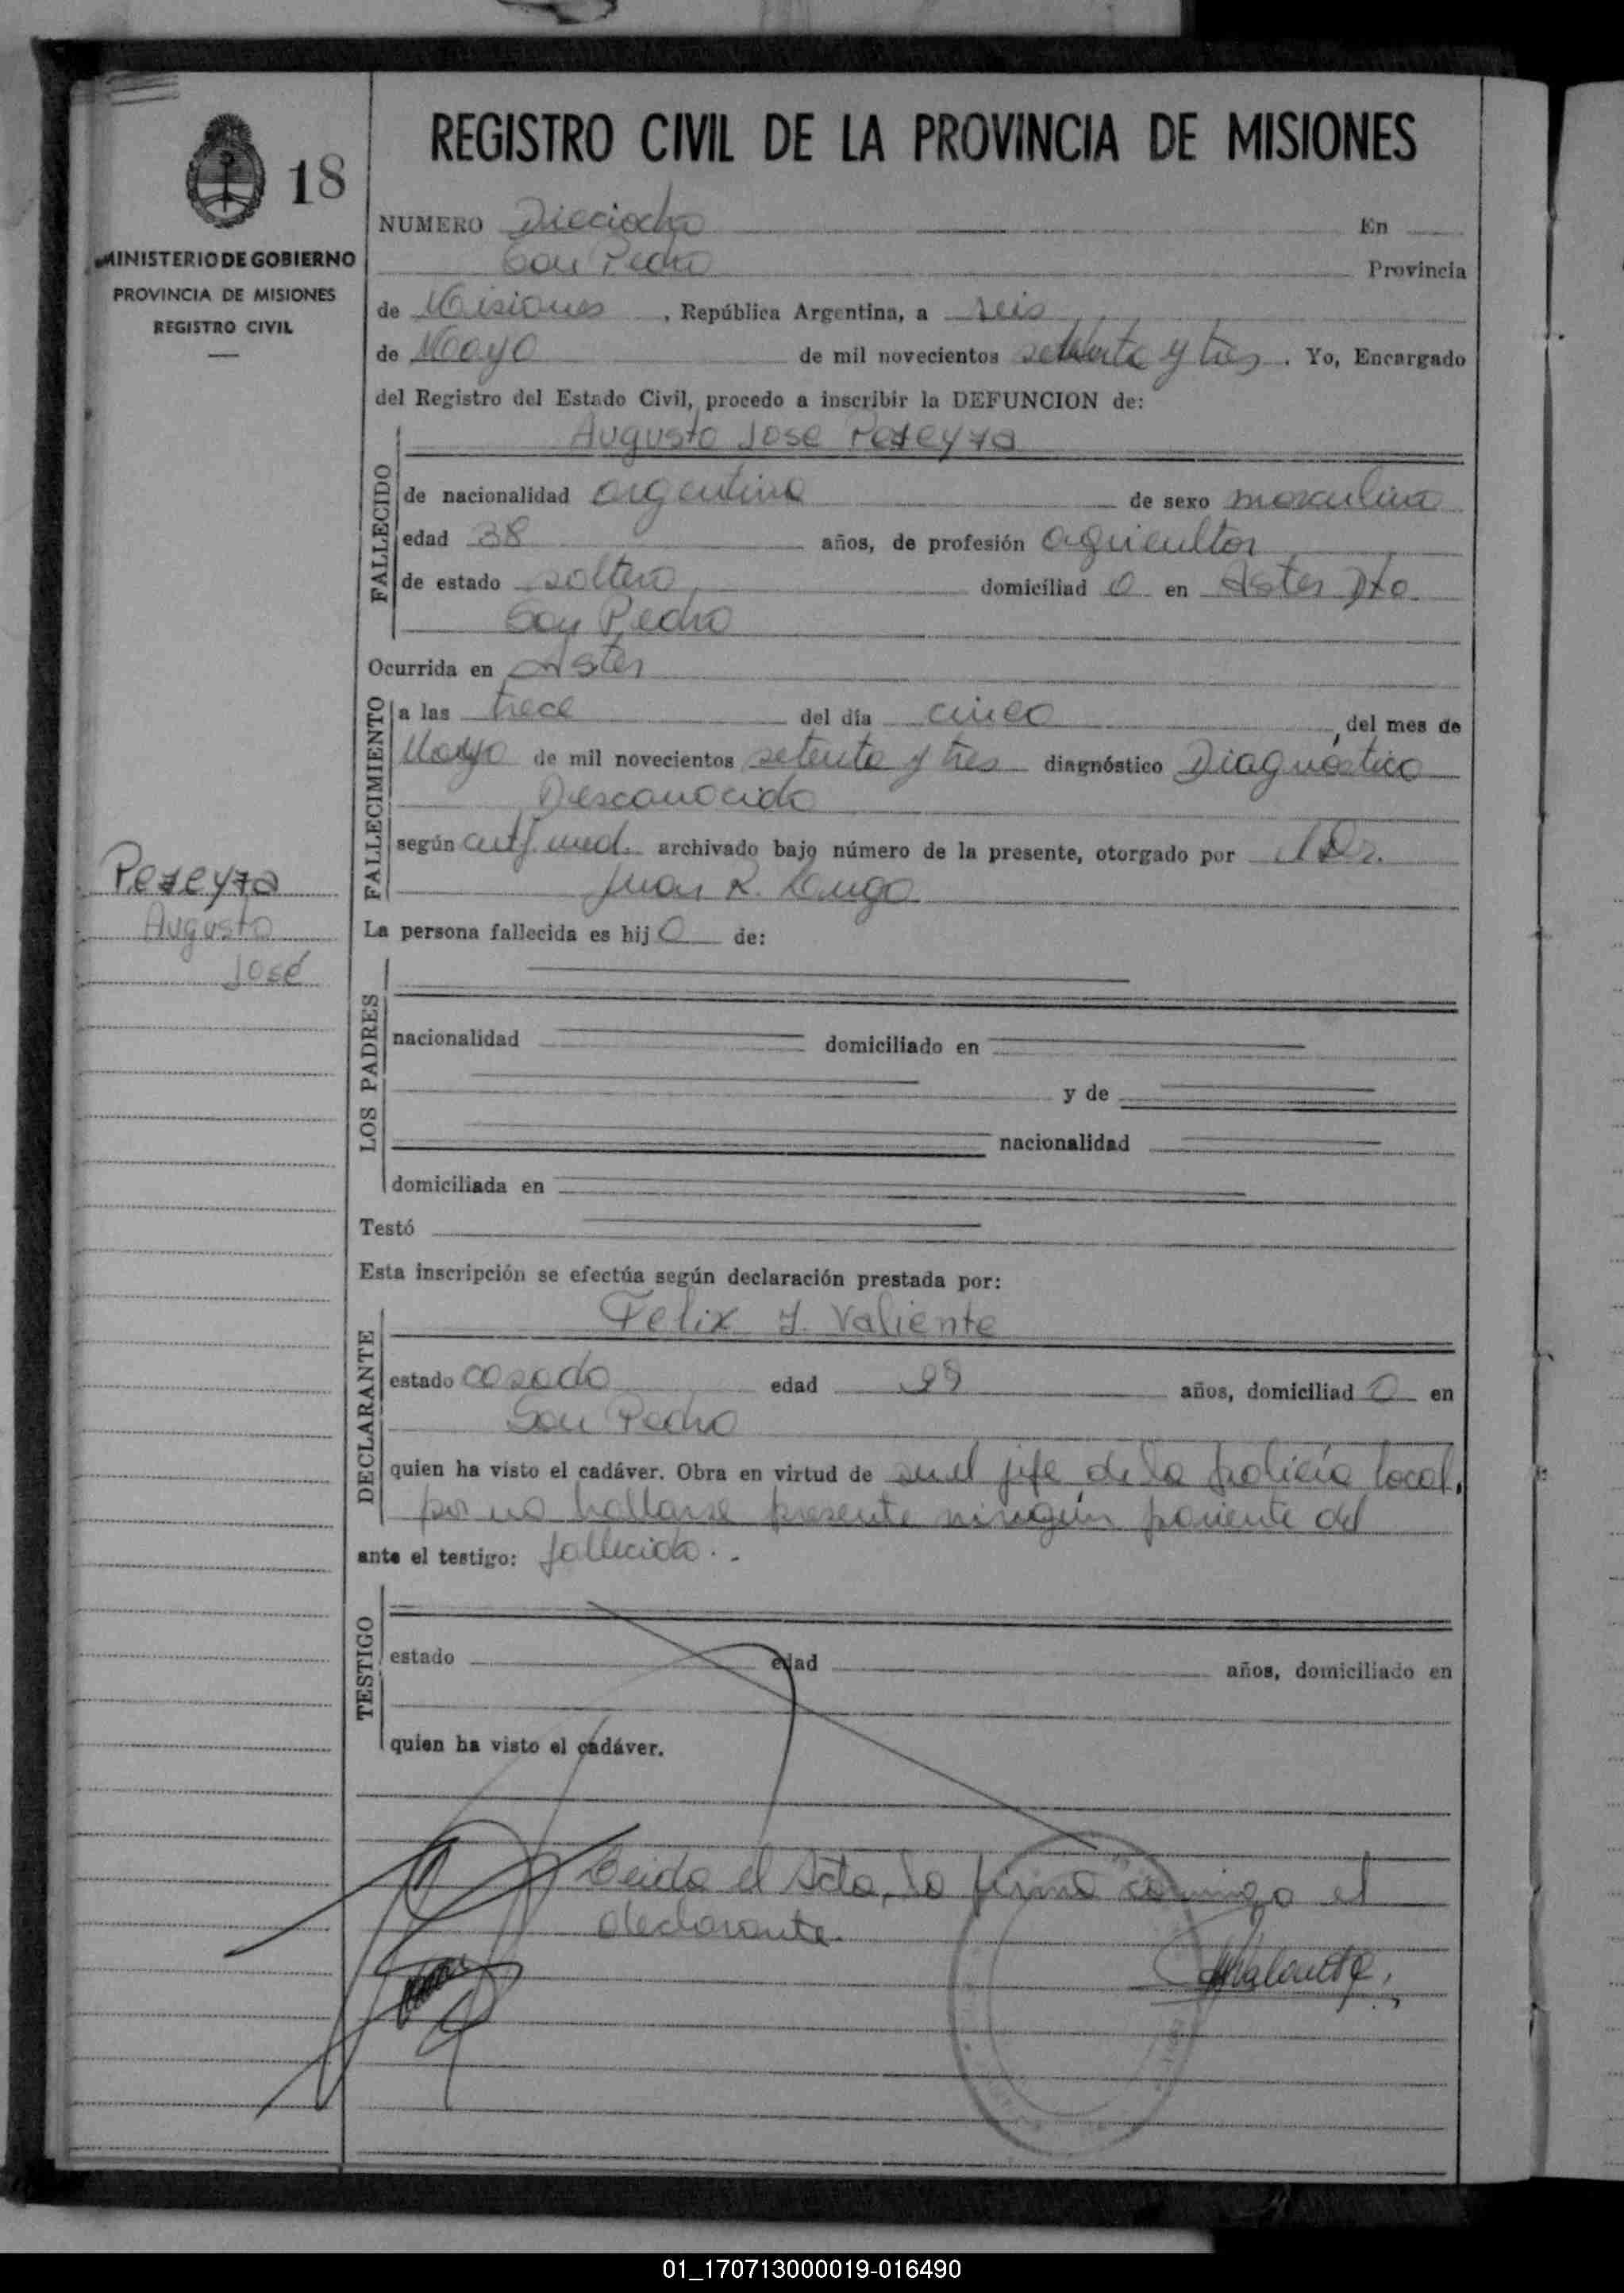 REGISTRO CIVIL DE LA PROVINCIA DE MISIONES
18
MINISTERIO DE GOBIERNO
PROVINCIA DE MISIONES
REGISTRO CIVIL
NUMERO Dieciocho En
San Pedro Provincia
de Misiones , República Argentina, a seis
de Mayo de mil novecientos setenta y tres . Yo, Encargado
del Registro del Estado Civil, procedo a inscribir la DEFUNCION de:
Augusto Jose Pereyra
FALLECIDO
de nacionalidad argentina de sexo masculino
edad 38 años, de profesión agricultor
de estado soltero domiciliad o en Aster Dto
San Pedro
Ocurrida en Aster
FALLECIMIENTO
a las trece del día cinco , del mes de
Mayo de mil novecientos setenta y tres diagnóstico Diagnóstico
Desconocido
según certf. med. archivado bajo número de la presente, otorgado por Dr.
Juan R. Longo
Pereyra
Augusto
José
La persona fallecida es hij o de:
LOS PADRES
nacionalidad domiciliado en
y de
nacionalidad
domiciliada en
Testó
Esta inscripción se efectúa según declaración prestada por:
Felix J. Valiente
DECLARANTE
estado casado edad años, domiciliad o en
San Pedro
quien ha visto el cadáver. Obra en virtud de ser el jefe de la policía local,
por no hallarse presente ningún pariente del
ante el testigo: fallecido..
TESTIGO
estado edad años, domiciliado en
quien ha visto el cadáver.
Leida el Acta, la firma conmigo el
declarante.
01_170713000019-016490